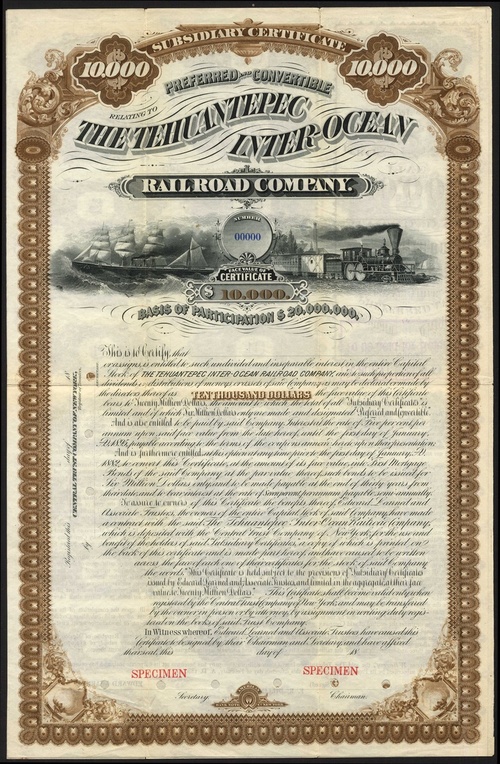 SUBSIDIARY CERTIFICATE
10.000
10.000
PREFERRED AND CONVERTIBLE
RELATING TO
THE TEHUANTEPEC
INTER-OCEAN
RAILROAD COMPANY.
NUMBER
00000
FACE VALUE OF
CERTIFICATE
$ 10.000.
BASIS OF PARTICIPATION $20,000,000.
This is to Certify, that
or assigns, is entitled to such undivided and inseparable interest in the entire Capital
Stock of THE TEHUANTEPEC INTER-OCEAN RAILROAD COMPANY, and such proportion of all
dividends or distributions of money or assets of said Company as may be declared or made by
the directors thereof as TEN THOUSAND DOLLARS the face value of this Certificate
bears to Twenty Million Dollars, the amount to which the total of all "Subsidiary Certificates" is
limited and of which Six Million Dollars only are made and designated "Preferred and Convertible."
And is also entitled to be paid by said Company Interest at the rate of Five per cent per
annum upon said face value from the date hereof, until the first day of January,
payable according to the terms of the coupons annexed hereto upon their presentation.
And is furthermore entitled, at his option at any time prior to the first day of January, A.D.
1882, to convert this Certificate, at the amount of its face value, into First Mortgage
Bonds of the said Company at the par value thereof, said bonds to be issued for
Six Million Dollars only and to be made payable at the end of thirty years from
their date and to bear interest at the rate of Seven per centum per annum payable semi-annually.
To assure to owners of this Certificate the benefits thereof, Edward Learned and
Associate Trustees, the owners of the entire Capital Stock of said Company, have made
a contract with the said The Tehuantepec Inter-Ocean Railroad Company,
which is deposited with the Central Trust Company of New York, for the use and
benefit of the holders of said Subsidiary Certificates, a copy of which is printed on
the back of this certificate and is made part hereof, and have caused to be written
across the face of each one of the certificates for the stock of said Company
the words "This Certificate is held subject to the provisions of "Subsidiary Certificates"
issued by Edward Learned and Associate Trustees, and limited in the aggregate, at their face
value, to Twenty Million Dollars." This Certificate shall become valid only when
registered by the Central Trust Company of New York, and may be transferred
by the owner in person or by attorney, by assignment in writing duly regis-
tered in the books of said Trust Company.
In Witness whereof, Edward Learned and Associate Trustees have caused this
Certificate to be signed by their Chairman and Secretary, and have affixed
their seal, this day of 18
SPECIMEN
SPECIMEN
Secretary.
Chairman.
Registered this day of 18
CENTRAL TRUST COMPANY OF NEW YORK,
by